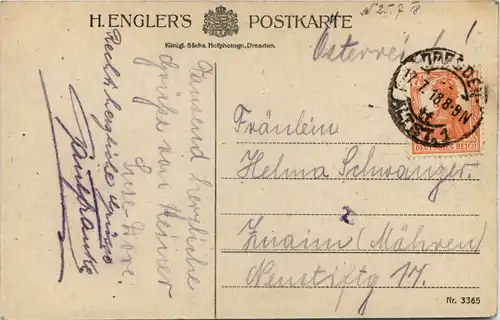 H. ENGLER'S POSTKARTE
Königl. Sächs. Hofphotogr., Dresden.
N 25-7 18
Österreich!
DRESDEN
17.7.18.8-9N
ALTST. 1
DEUTSCHES REICH
Fräulein
Helma Schwanzer.
2
Znaim (Mähren)
Neustiftg 17.
Nr. 3365
Tausend herzliche
Grüße von Deiner
Suse-Dore.
Recht herzliche Grüße